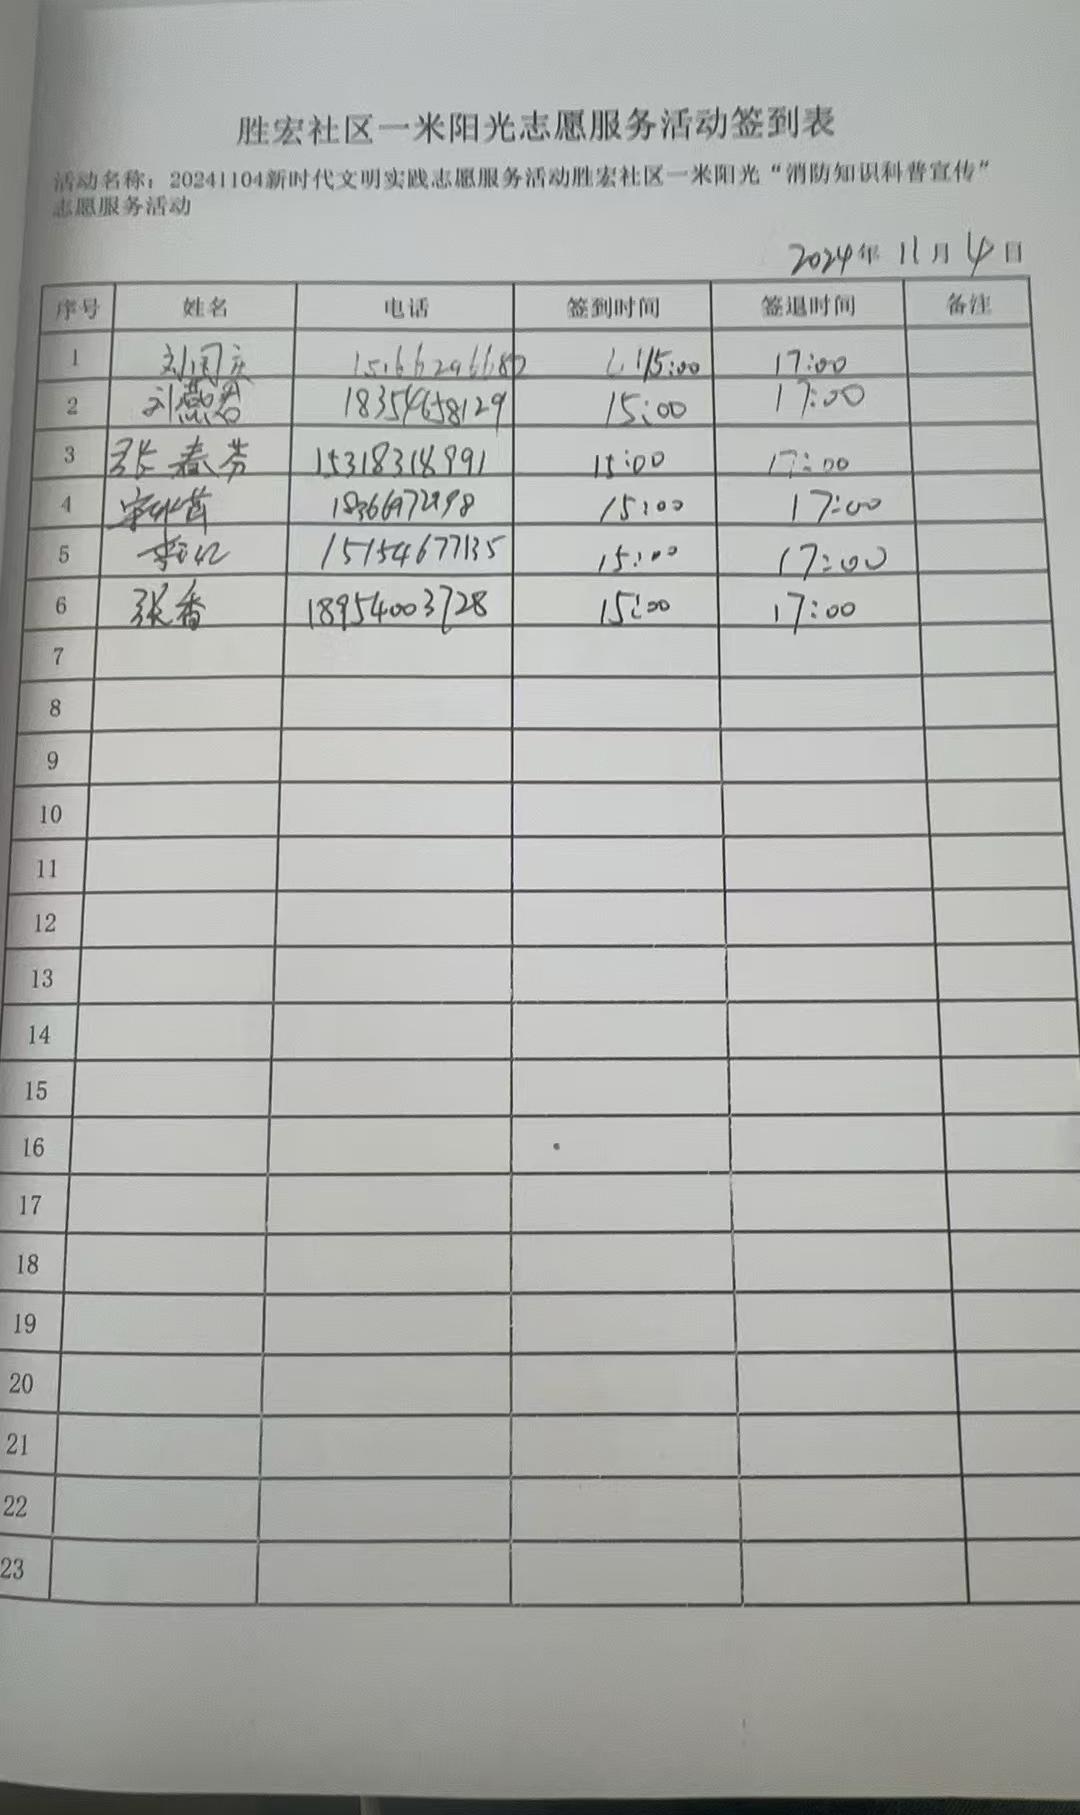 胜宏社区一米阳光志愿服务活动签到表
活动名称：20241104新时代文明实践志愿服务活动胜宏社区一米阳光“消防知识科普宣传”
志愿服务活动
2024年 11月 4日
序号 姓名 电话 签到时间 签退时间 备注
1 刘国庆 15:00 17:00
2 刘燕君 15:00 17:00
3 张春芳 15318318991 15:00 17:00
4 15:00 17:00
5 15154677135 15:00 17:00
6 张香 18954003728 15:00 17:00
7
8
9
10
11
12
13
14
15
16
17
18
19
20
21
22
23